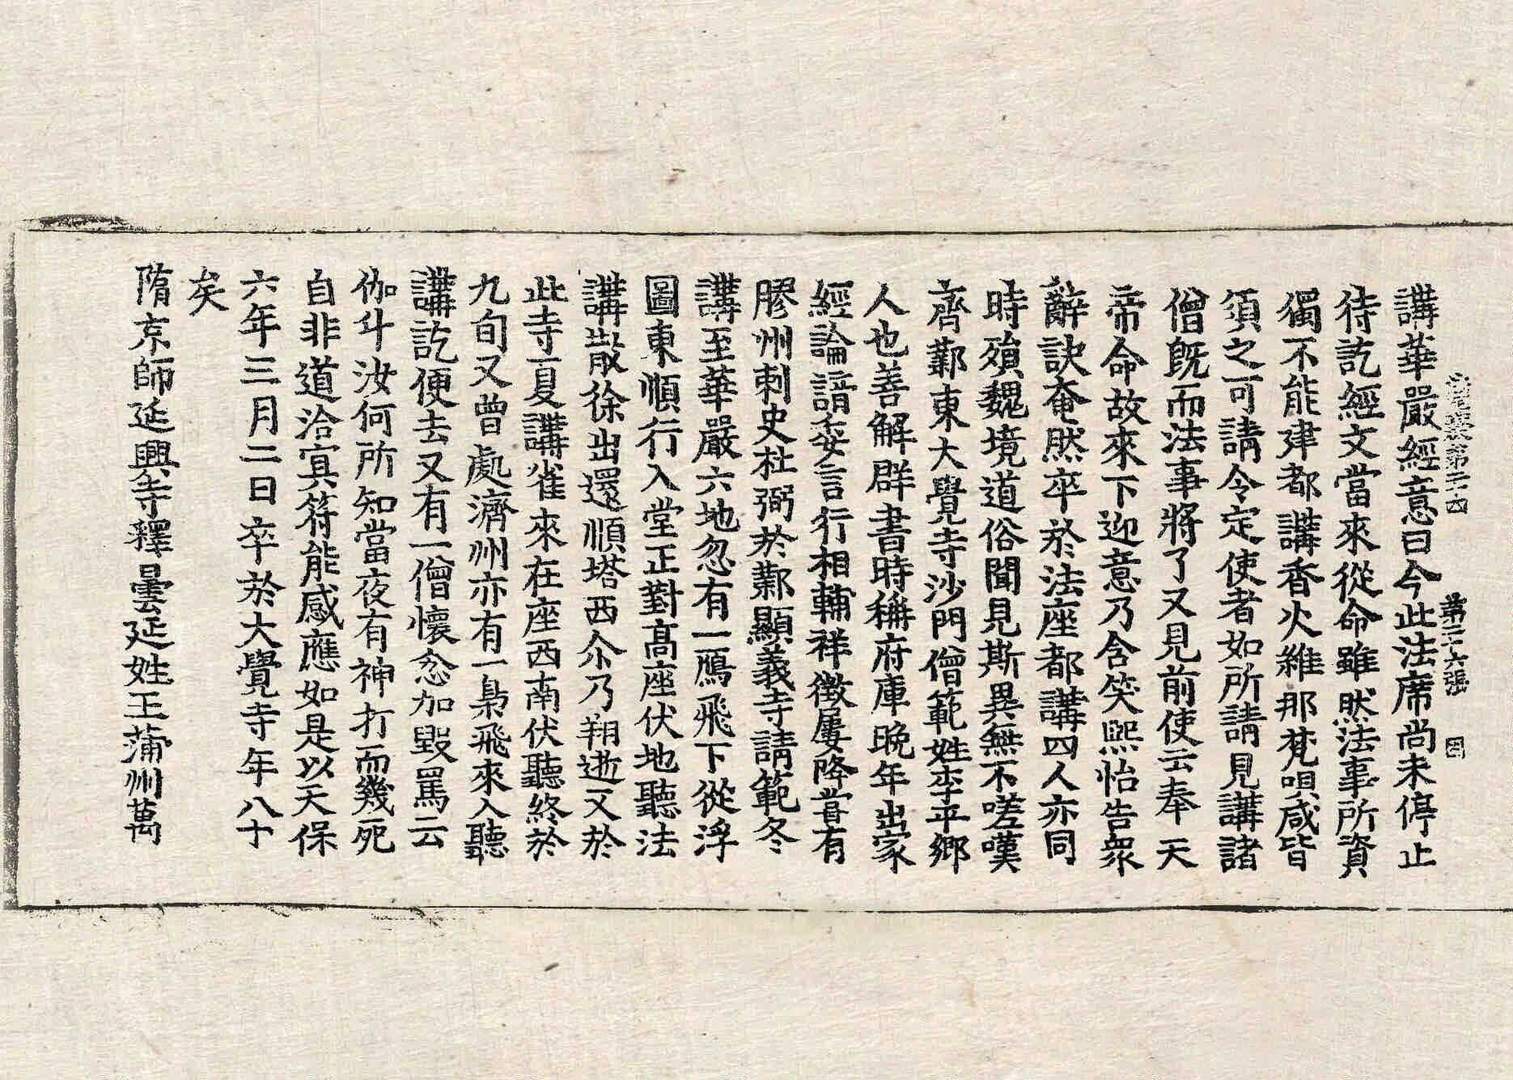 講華嚴經意曰今此法席尚未停止
待訖經文當來從命雖然法事所資
獨不能建都講香火維那梵唄咸皆
須之可請令定使者如所請見講諸
僧旣而法事將了又見前使云奉天
帝命故來下迎意乃含笑熙怡告衆
辭訣奄然卒於法座都講四人亦同
時殞魏境道俗聞見斯異無不嗟嘆
齊鄴東大覺寺沙門僧範姓李平鄉
人也善解群書時稱府庫晚年出家
經論諳委言行相輔祥徵屢降甞有
膠州刺史杜弼於鄴顯義寺請範冬
講至華嚴六地忽有一鴈飛下從浮
圖東順行入堂正對高座伏地聽法
講散徐出還順塔西尒乃翔逝又於
此寺夏講雀來在座西南伏聽終於
九旬又曾處濟州亦有一梟飛來入聽
講訖便去又有一僧懷忿加毀罵云
伽斗汝何所知當夜有神打而幾死
自非道洽冥符能感應如是以天保
六年三月二日卒於大覺寺年八十
矣
隋京師延興寺釋曇延姓王蒲州萬